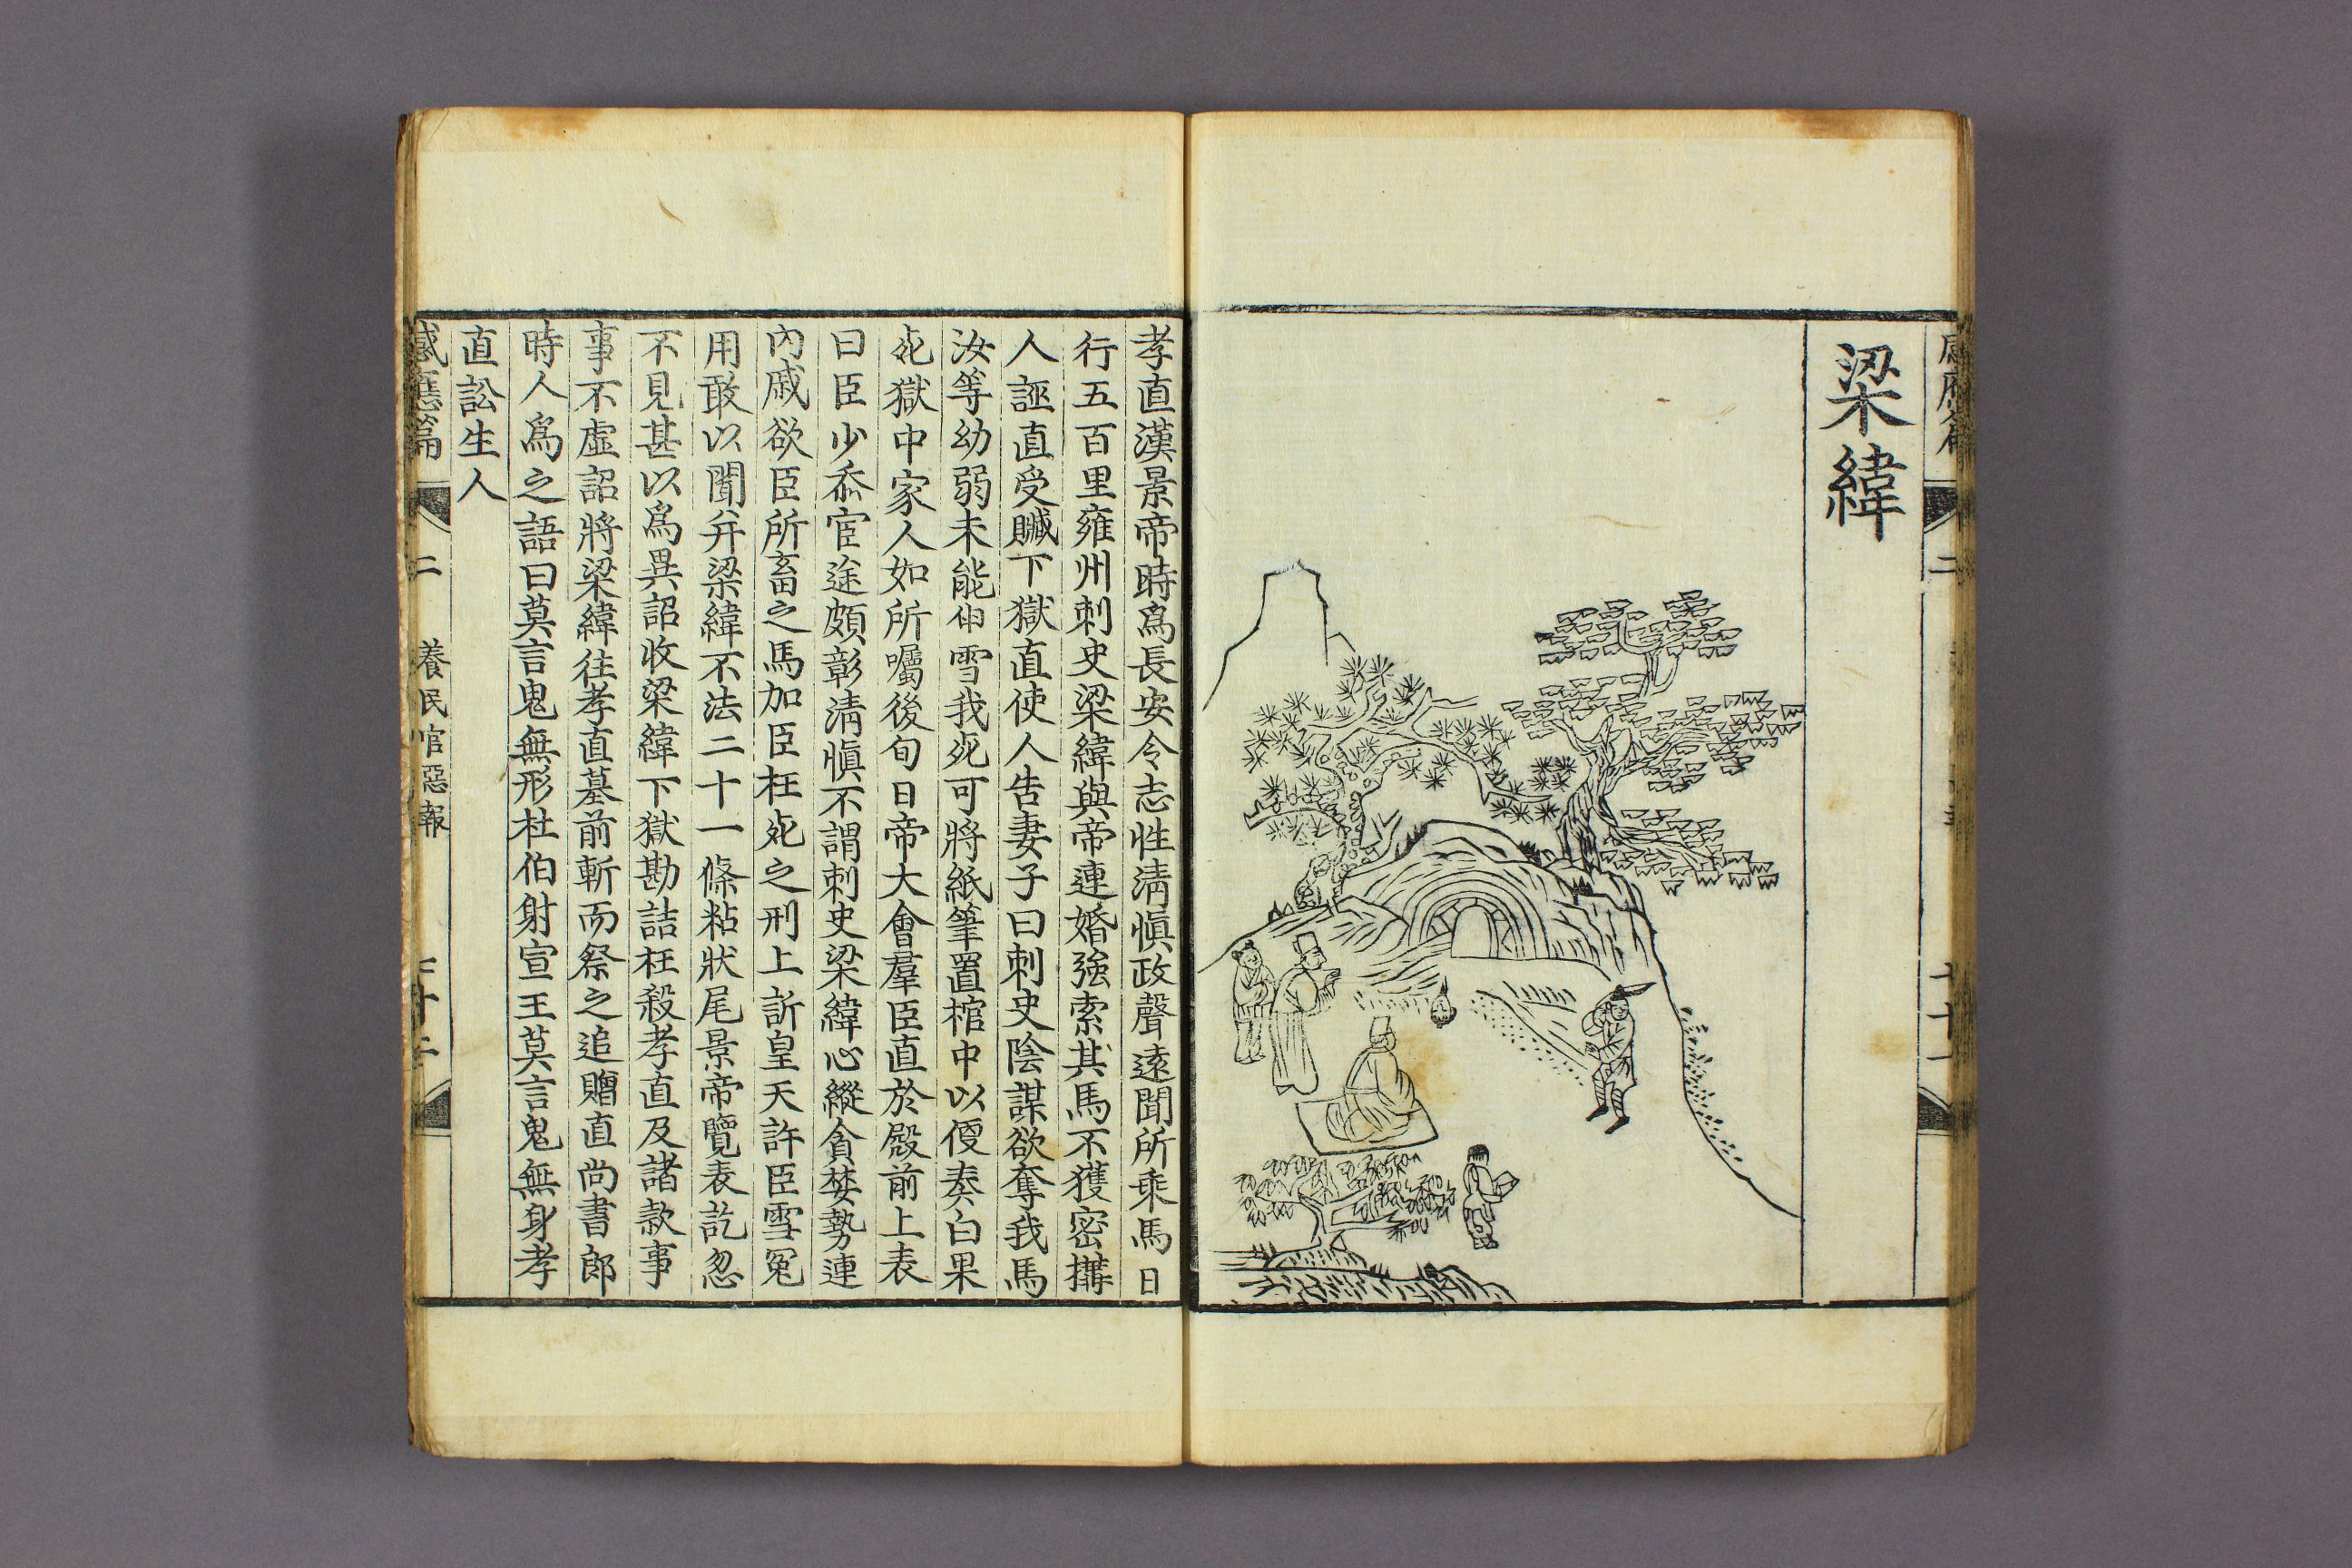 梁緯
孝直漢景帝時爲長安令志性淸愼政聲遠聞所乘馬日
行五百里雍州刺史梁緯與帝連婚強索其馬不獲密搆
人誣直受贓下獄直使人告妻子曰刺史陰謀欲奪我馬
汝等幼弱未能申雪我死可將紙筆置棺中以便奏白果
死獄中家人如所囑後旬日帝大會羣臣直於殿前上表
曰臣少忝宦途頗彰淸愼不謂刺史梁緯心縱貪婪勢連
內戚欲臣所畜之馬加臣枉死之刑上訴皇天許臣雪冤
用敢以聞幷梁緯不法二十一條粘狀尾景帝覽表訖忽
不見甚以爲異詔收梁緯下獄勘詰枉殺孝直及諸款事
事不虛詔將梁緯往孝直墓前斬而祭之追贈直尚書郎
時人爲之語曰莫言鬼無形杜伯射宣王莫言鬼無身孝
直訟生人
感應篇 二 養民官惡報